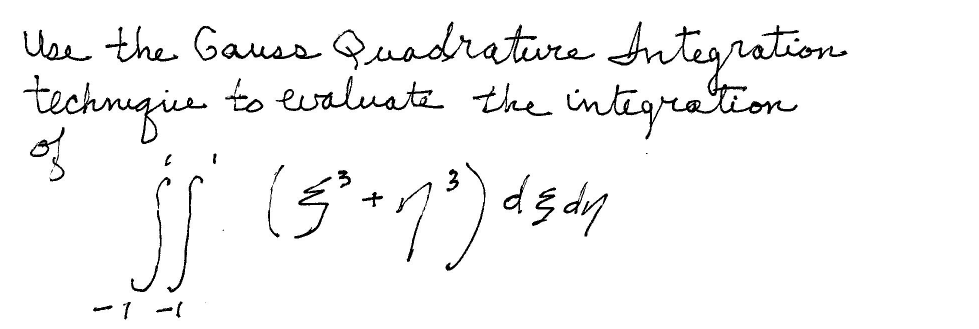 Use the Gauss Quadrature Integration
technique to evaluate the integration
of
∫₋₁¹ ∫₋₁¹ (ξ³ + η³) dξ dη